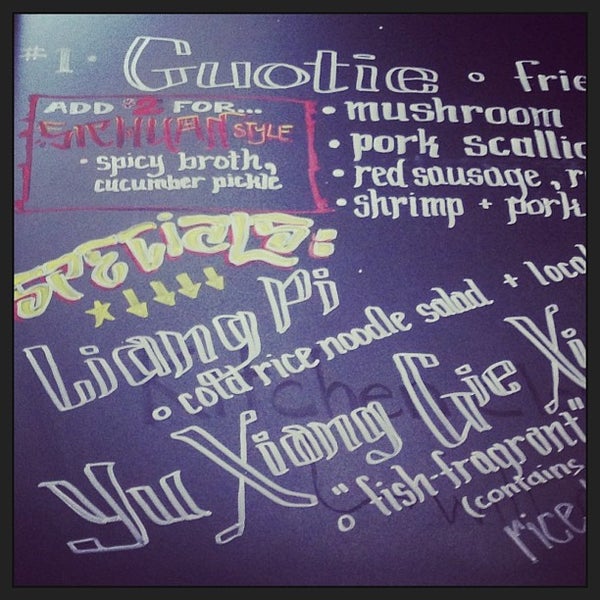 #1. Guotie ° frie
ADD $2 FOR...
SICHUAN STYLE
• spicy broth,
cucumber pickle
• mushroom
• pork scallio
• red sausage, r
• shrimp + pork
SPECIALS:
Liang Pi
° cold rice noodle salad + loca
Yu Xiang Gie Xi
° "fish-fragrant"
(contains
rice